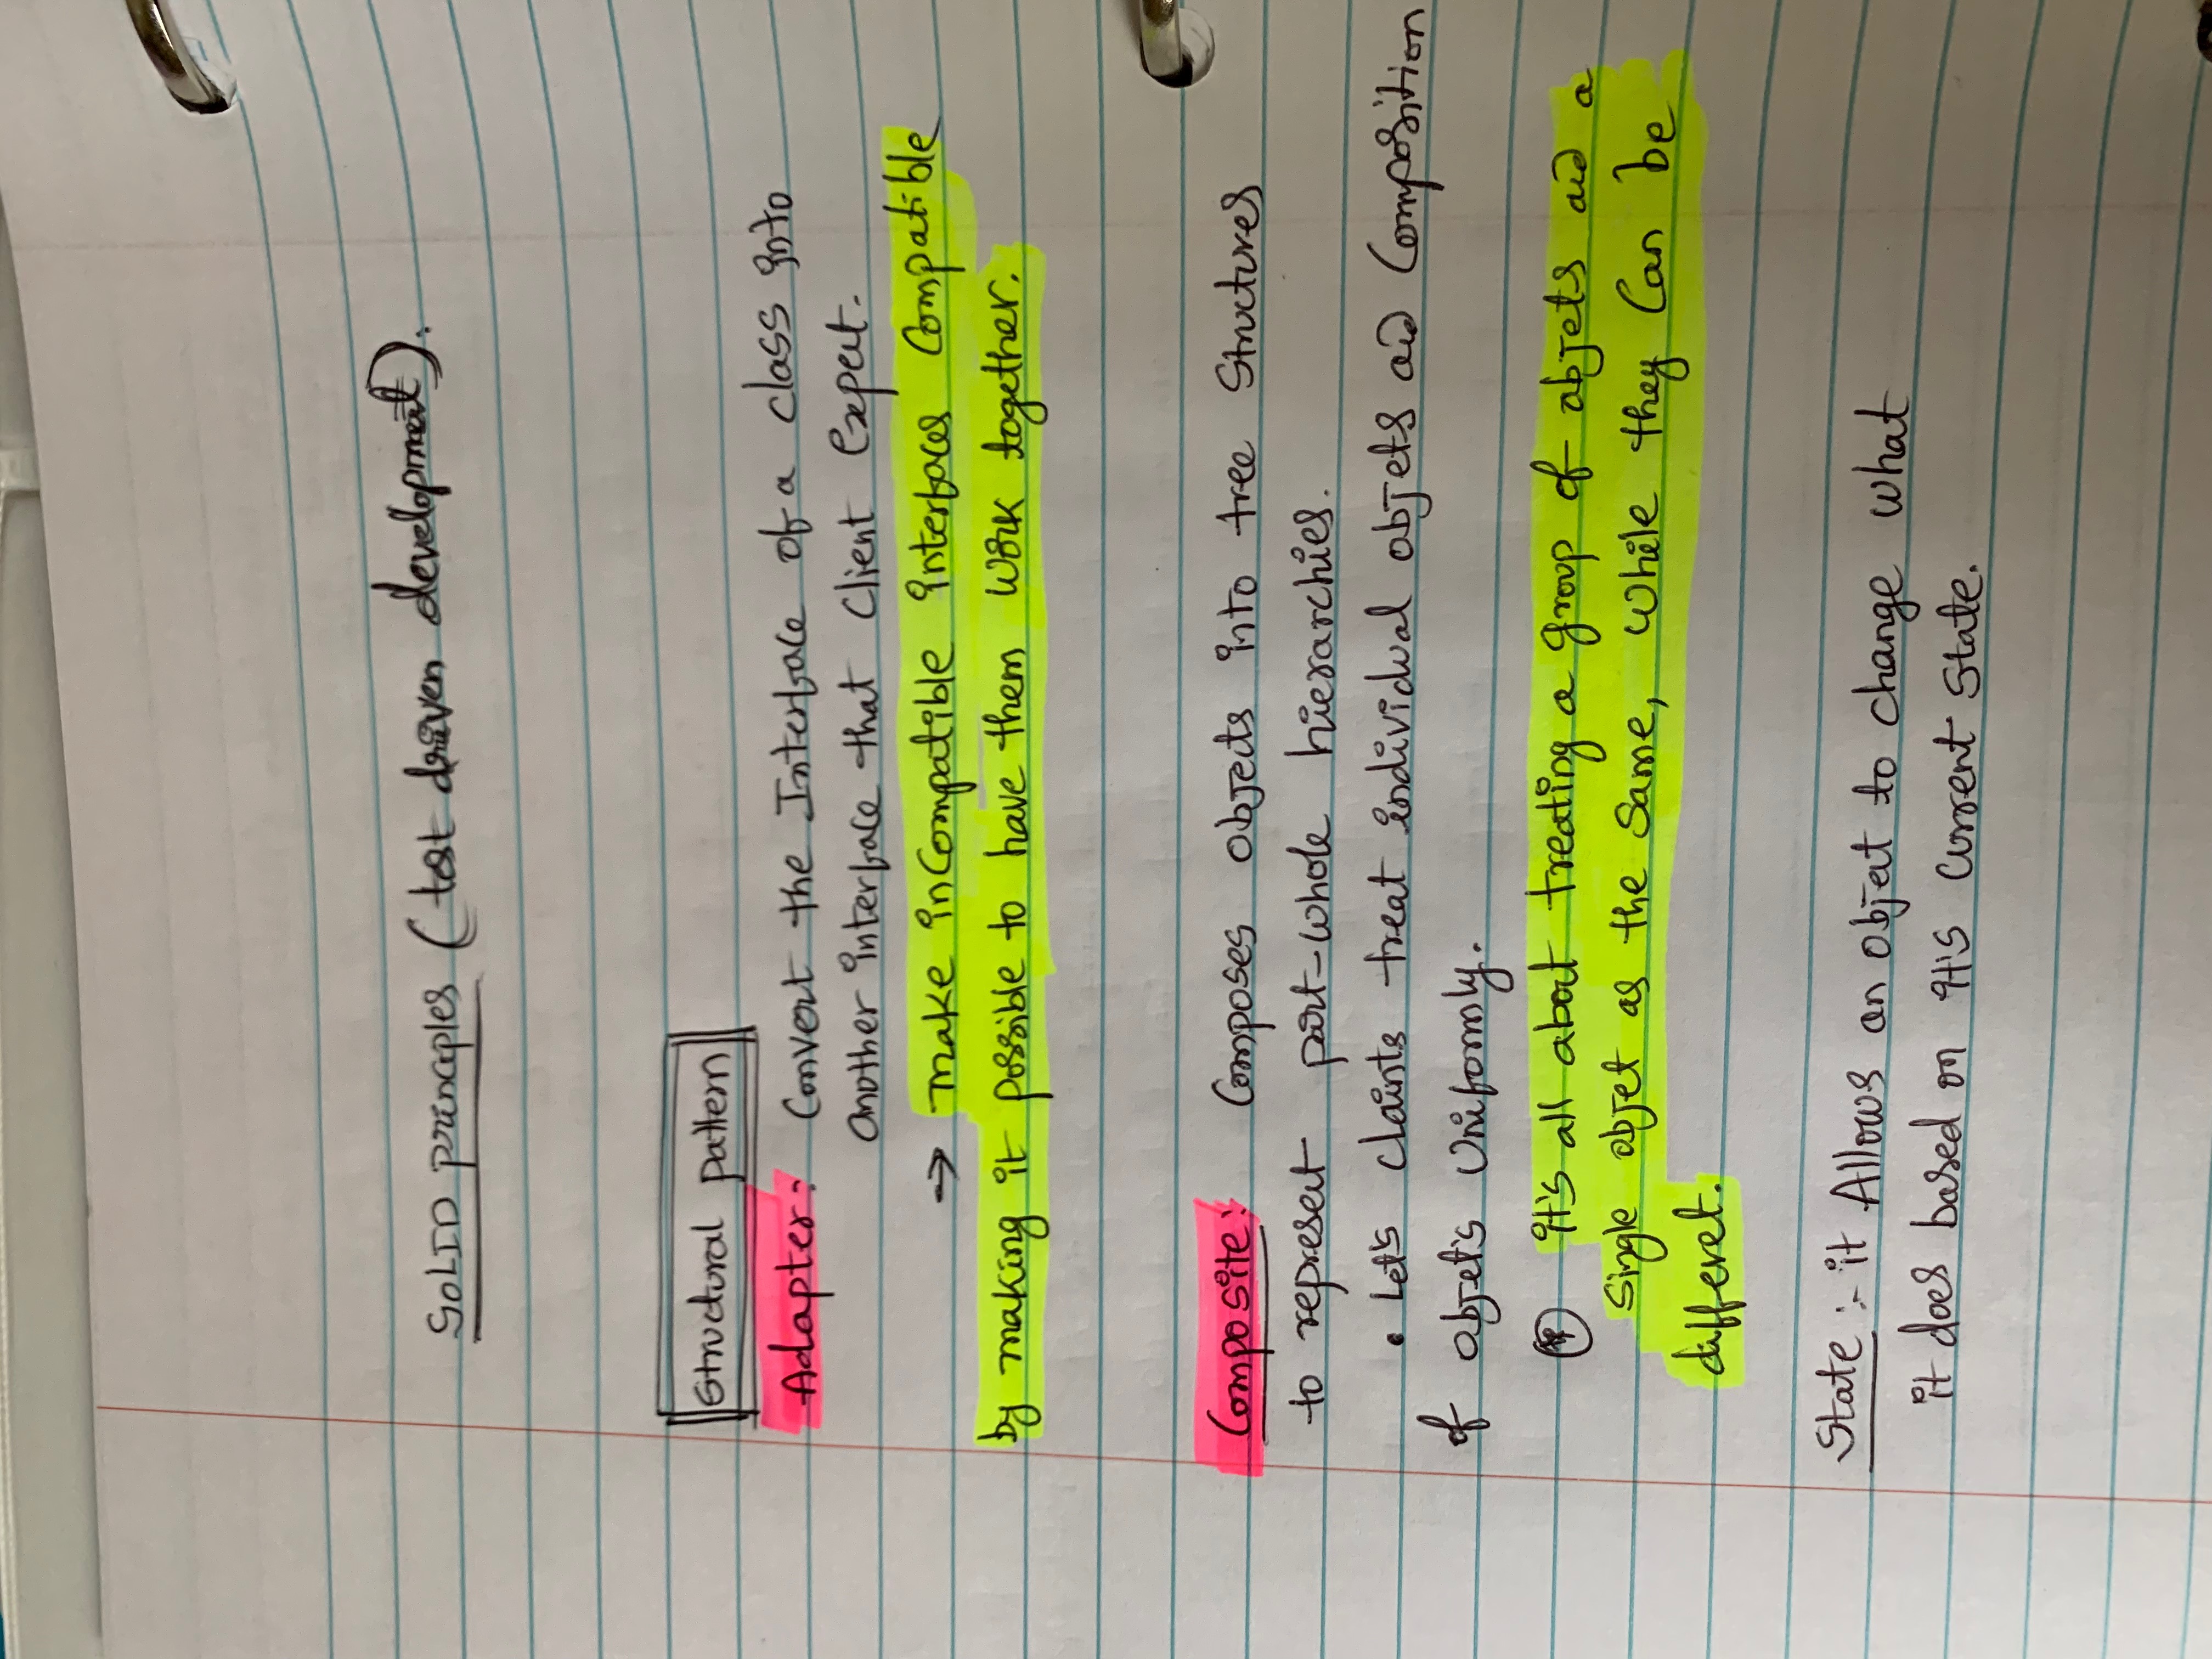 SOLID principles (test driven development).
Structural pattern
Adapter: Convert the Interface of a class into
another interface that Client Expect.
→ make inCompatible interfaces Compatible
by making it possible to have them work together.
Composite: Composes objects into tree structures
to represent part-whole hierarchies.
• Let's claints treat individual objets and Composition
of objet's Uniformly.
* it's all about treating a group of objets and a
single objet as the same, while they can be
differet.
State :- it Allows an object to change what
it does based on it's current state.